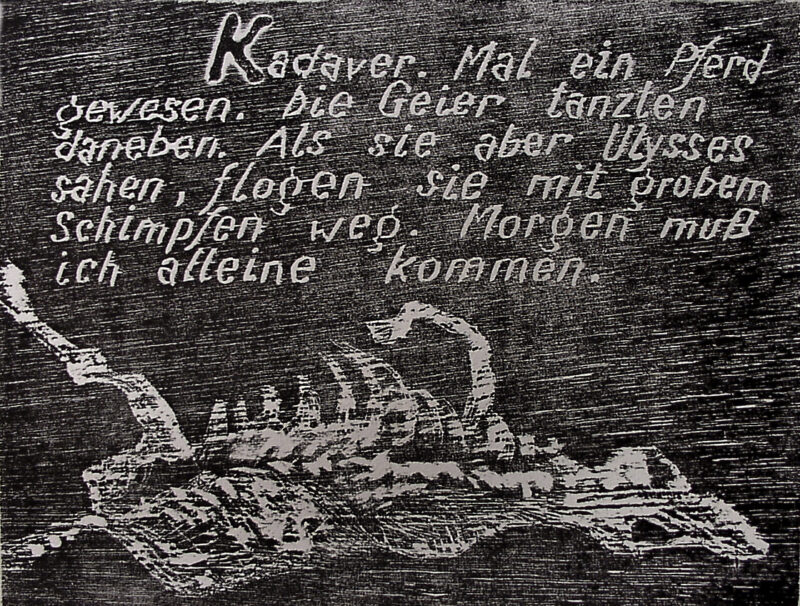 Kadaver. Mal ein Pferd
gewesen. Die Geier tanzten
daneben. Als sie aber Ulysses
sahen, flogen sie mit grobem
Schimpfen weg. Morgen muß
ich alleine kommen.